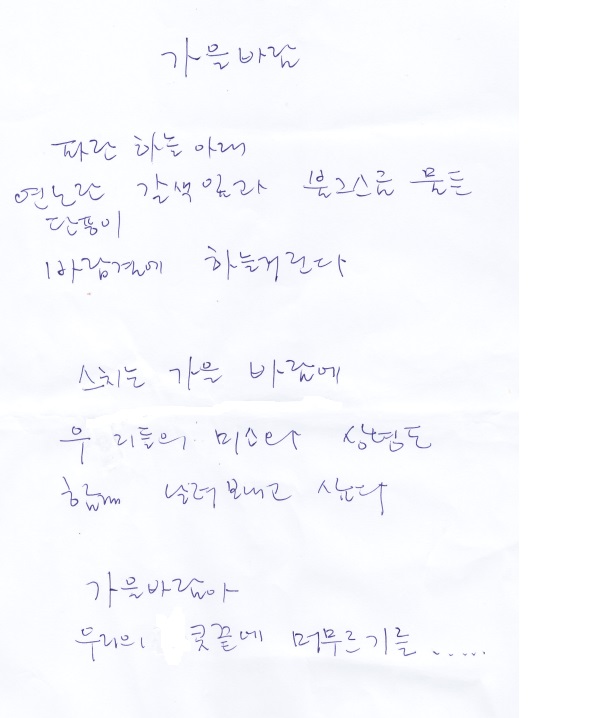 가을바람
파란 하늘 아래
연노란 갈색잎과 붉그스름 물든
단풍이
바람결에 하늘거린다
스치는 가을 바람에
우리들의 미소와 상념도
함께 날려보내고 싶다
가을바람아
우리의 콧끝에 머무르기를 ......